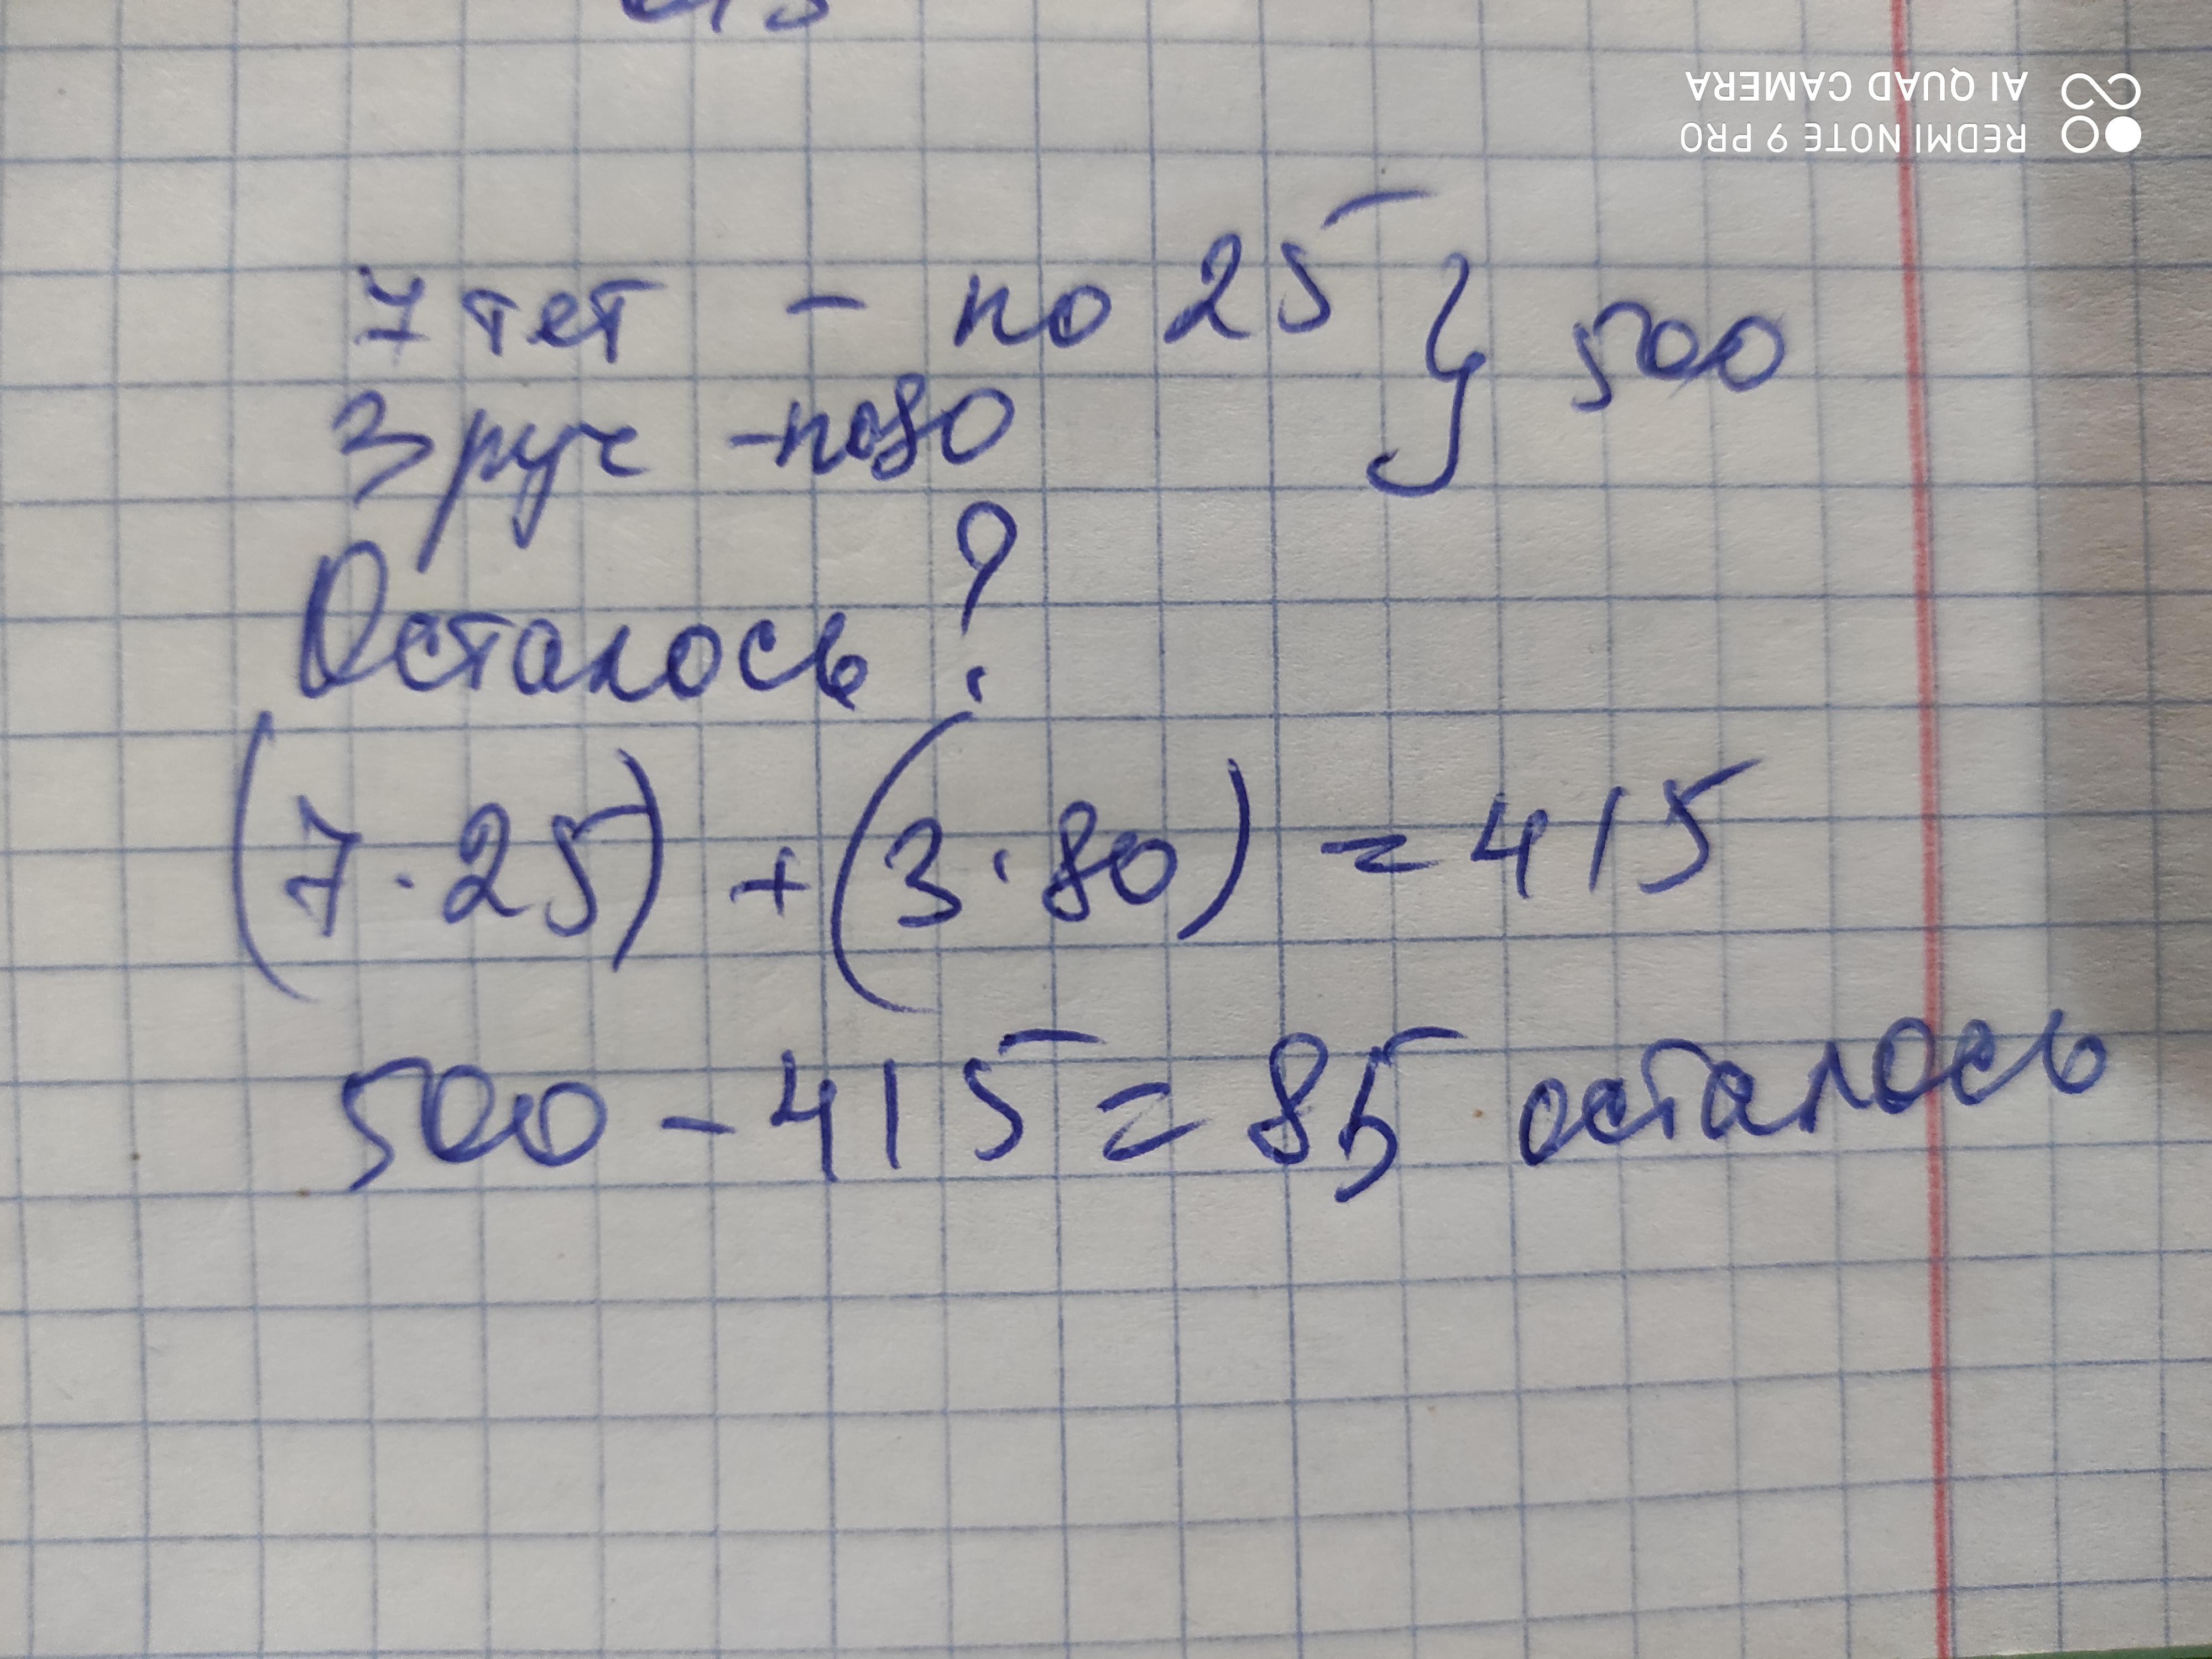 7 тет - по 25 } 500
3 руч - по 80
Осталось ?
(7·25) + (3·80) = 415
500 - 415 = 85 осталось
REDMI NOTE 9 PRO
AI QUAD CAMERA